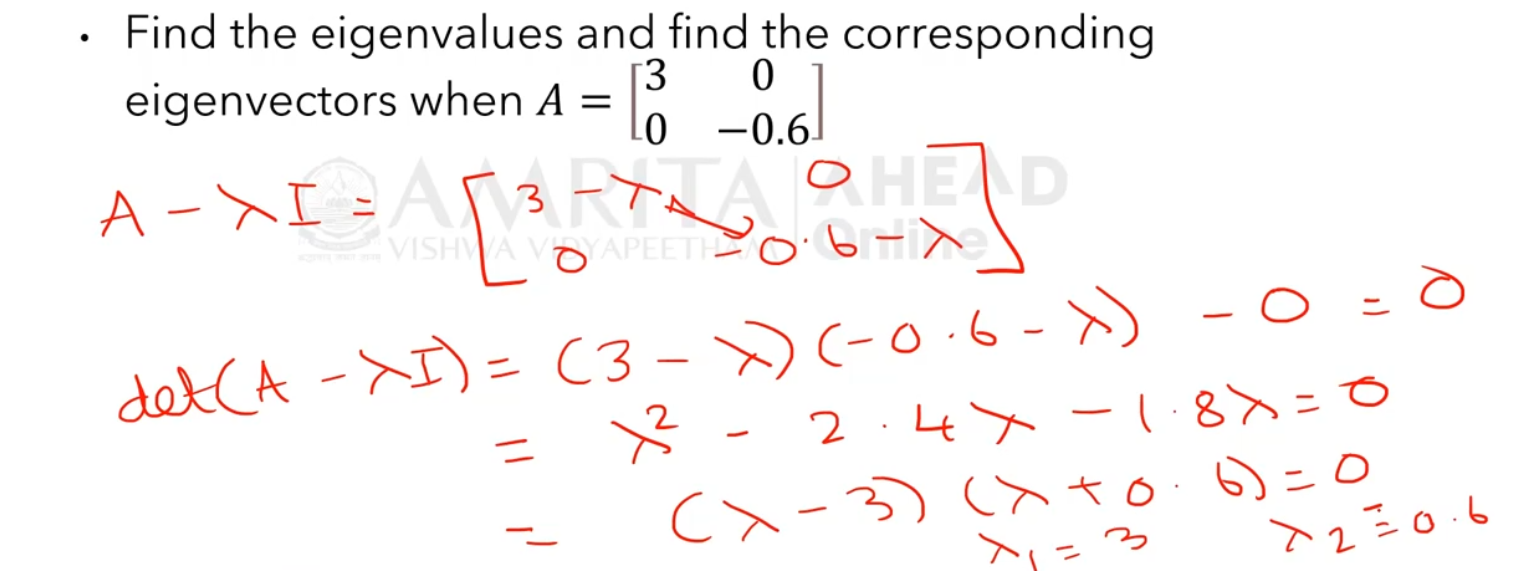 • Find the eigenvalues and find the corresponding
eigenvectors when A = [3 0
0 −0.6]
AMRITA AHEAD
VISHWA VIDYAPEETHAM Online
A - λI = [3 - λ 0
0 -0.6 - λ]
det(A - λI) = (3 - λ)(-0.6 - λ) - 0 = 0
= λ² - 2.4λ - 1.8λ = 0
= (λ - 3)(λ + 0.6) = 0
λ₁ = 3 λ₂ = -0.6